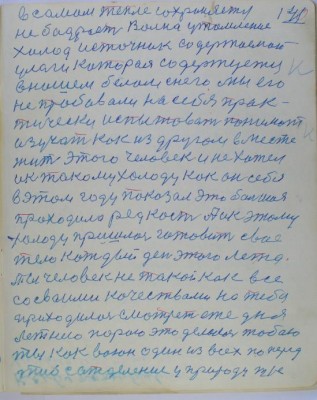 в самом тепле сохраняется
не бодрость Волна утомление
холод источник содержательной
влаги которая содержуется
в нашем белом снегом мы его
не пробовали на себя прак-
тически испытовать понимать
изучать как из другом вместе
жить Этого человек и не хотел
ик такому холоду как он себя
в этом году показал это большая
проходила редкость А ик этому
холоду пришлся готовить свае
тело каждый ден этого лета.
Ты человек не такой как все
со своими качествами на тебя
приходился смотреть аже дня
летнею пораю это делался тобаю
ты как воин один из всех поперед
природу